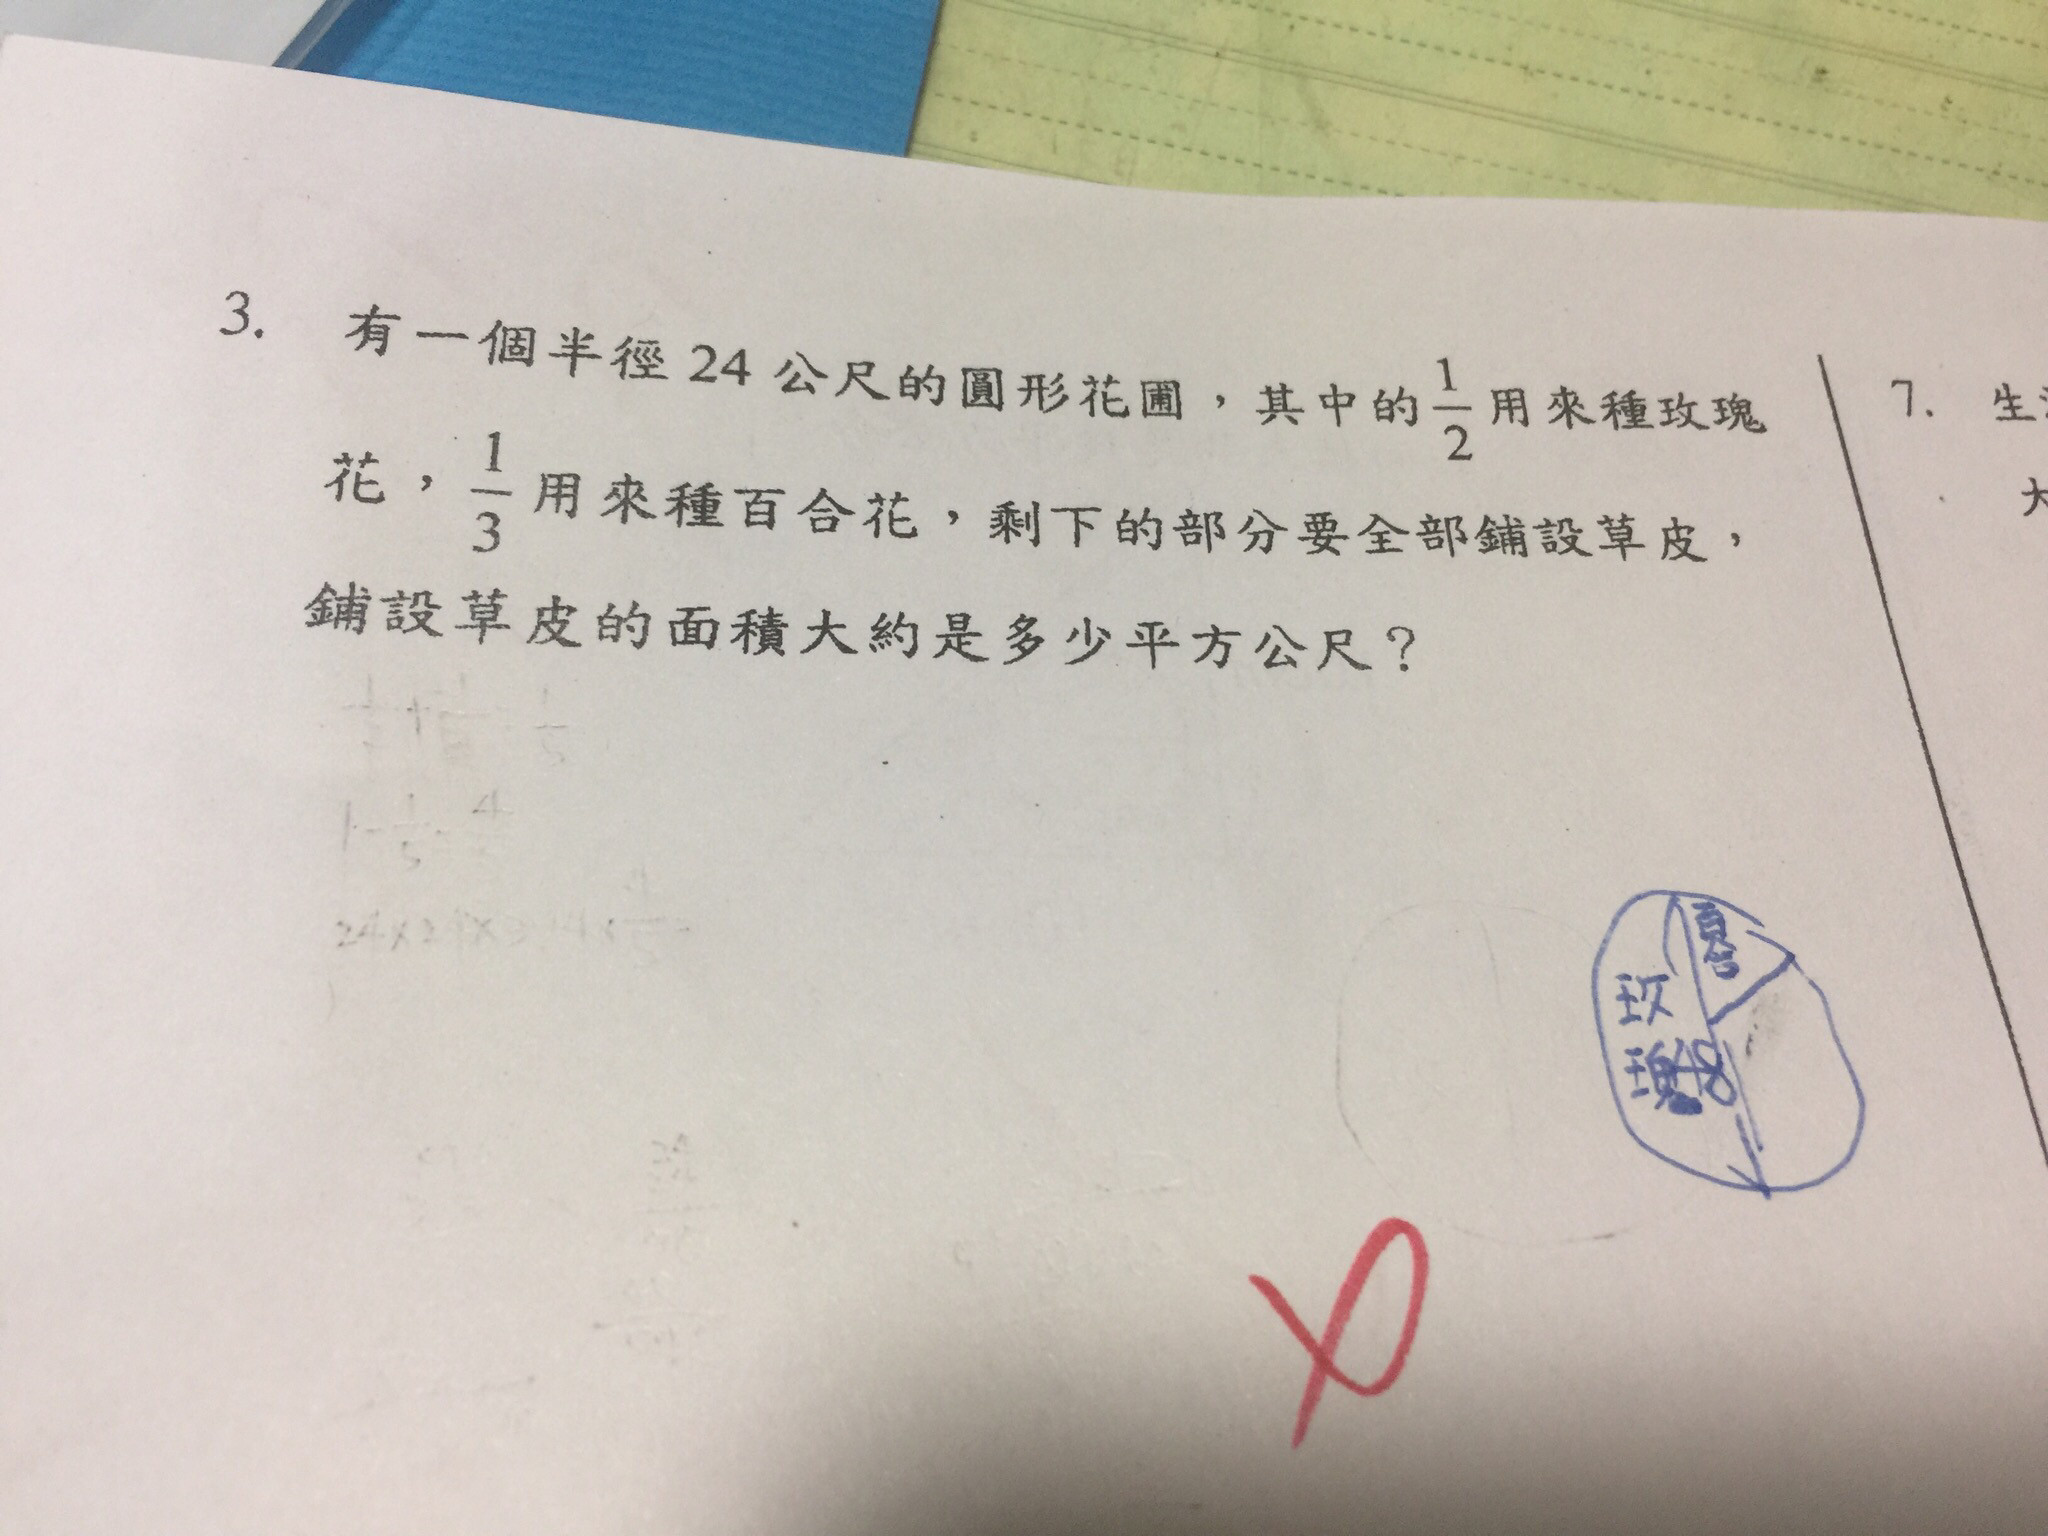 3. 有一個半徑 24 公尺的圓形花圃，其中的 1/2 用來種玫瑰
花，1/3 用來種百合花，剩下的部分要全部鋪設草皮，
鋪設草皮的面積大約是多少平方公尺？
7. 生
大
百合
玫
瑰 48